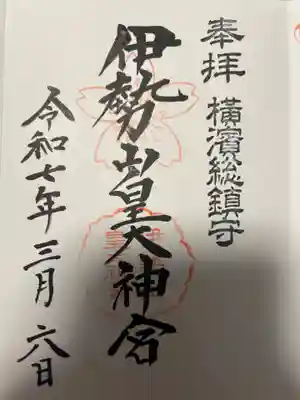 奉拝 横濱総鎮守
伊勢山皇大神宮
令和七年三月六日